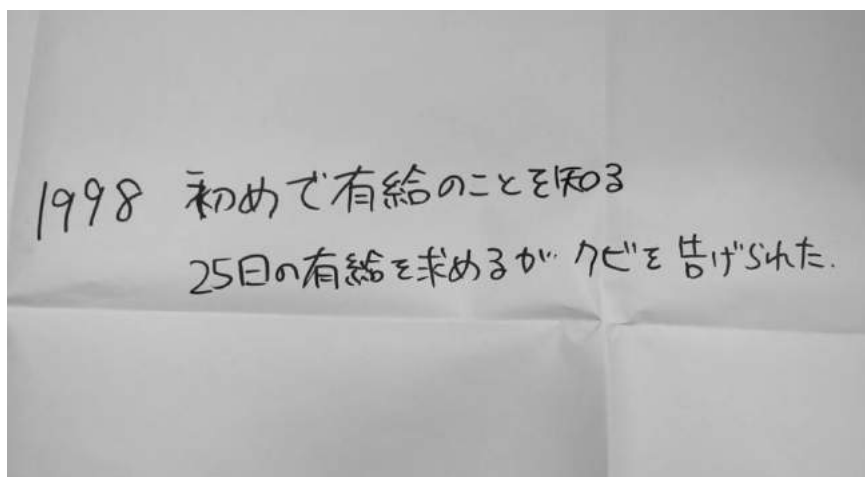 1998 初めで有給のことを知る
25日の有給を求めるが クビを告げられた.